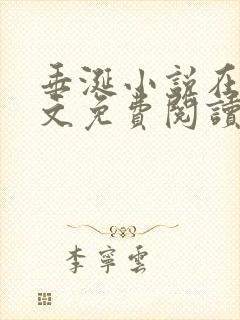 垂涎小説在
文免費閱讀
李寧雲